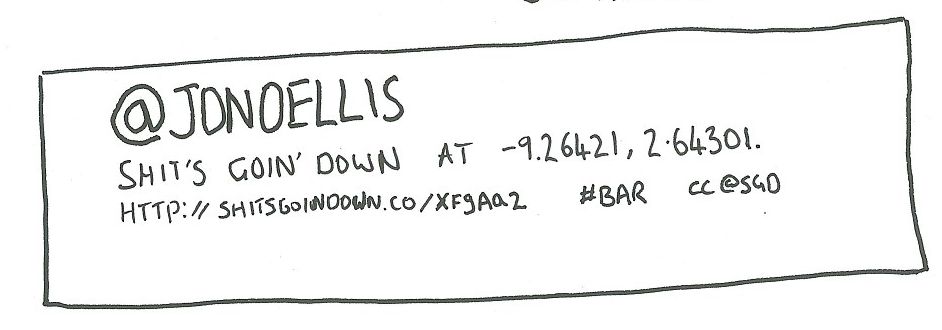 @JONOELLIS
SHIT'S GOIN' DOWN AT -9.26421, 2.64301.
HTTP://SHITSGOINDOWN.CO/XF9AQ2 #BAR CC @SGD